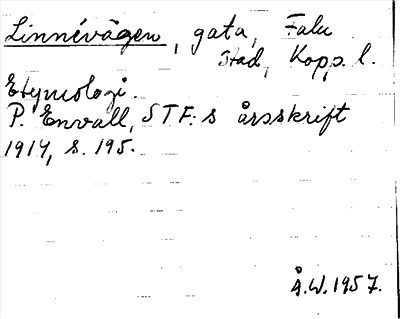 Linnévägen, gata, Falu
stad, Kopp. l.
Etymologi.
P. Envall, STF:s årsskrift
1914, s. 195.
Å.W. 1957.